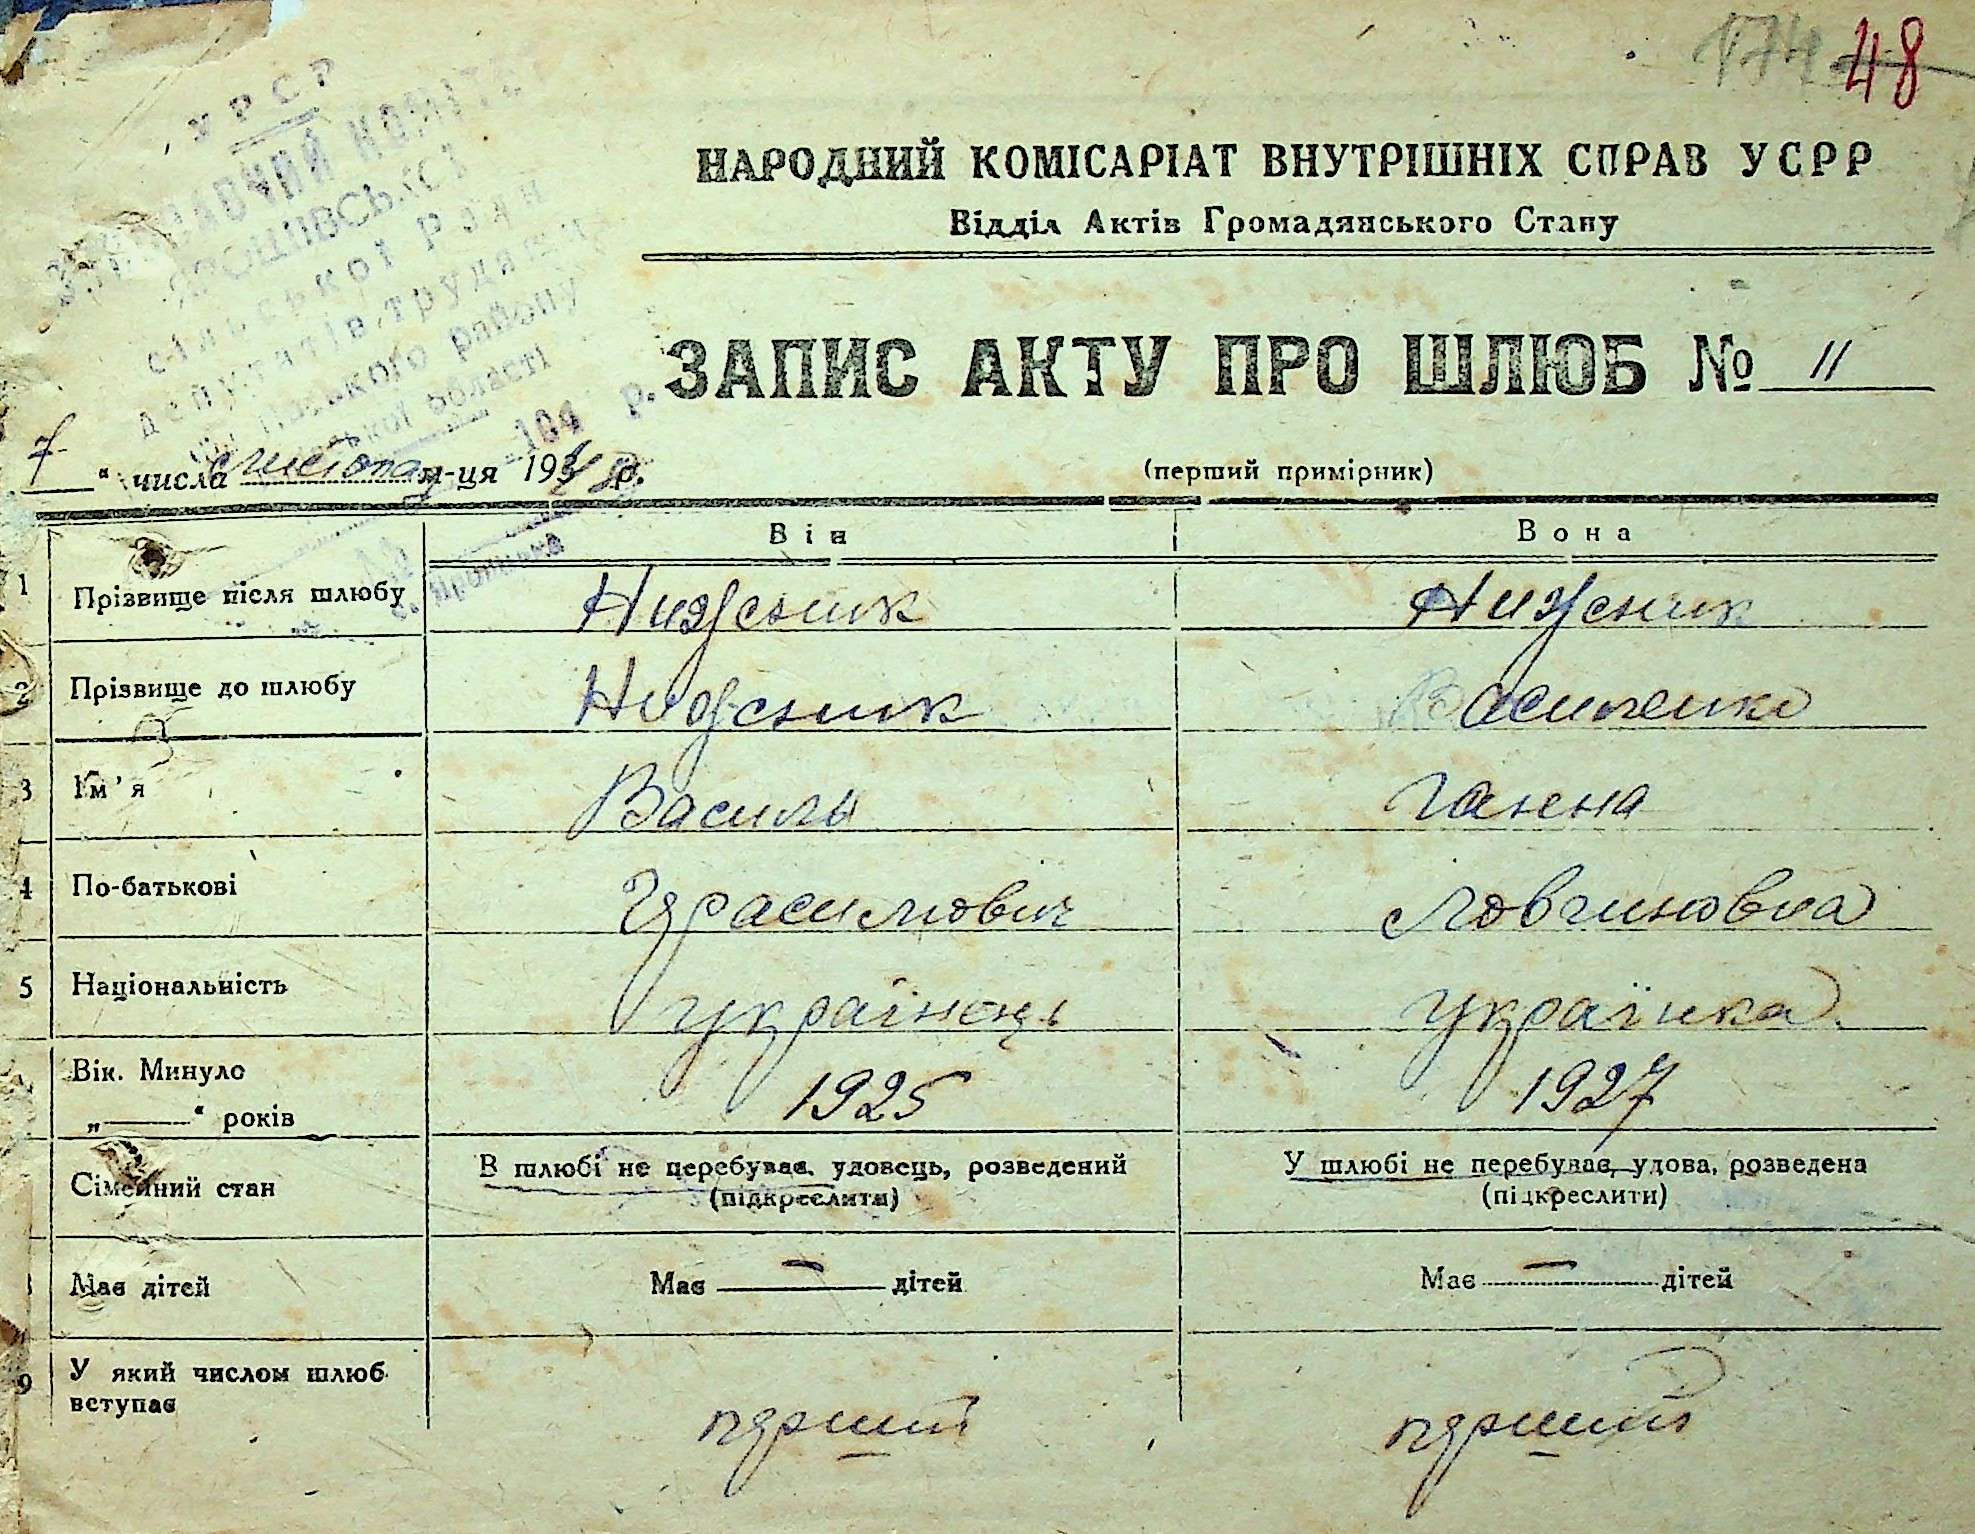 174 48
УРСР
НАРОДНИЙ КОМІСАРІАТ ВНУТРІШНІХ СПРАВ УСРР
Відділ Актів Громадянського Стану
сільської Ради
депутатів трудящих
району
області
ЗАПИС АКТУ ПРО ШЛЮБ № 11
7 " числа листопад м-ця 19 р.
(перший примірник)
Він Вона
1 Прізвище після шлюбу Нижник Нижник
2 Прізвище до шлюбу Нижник Василенко
3 Ім'я Василь Ганна
4 По-батькові Герасимович
5 Національність українець українка
Вік. Минуло
„ “ років 1925 1927
Сімейний стан В шлюбі не перебував, удовець, розведений У шлюбі не перебуває, удова, розведена
(підкреслити) (підкреслити)
Має дітей Має — дітей Має — дітей
9 У який числом шлюб
вступає перший перший